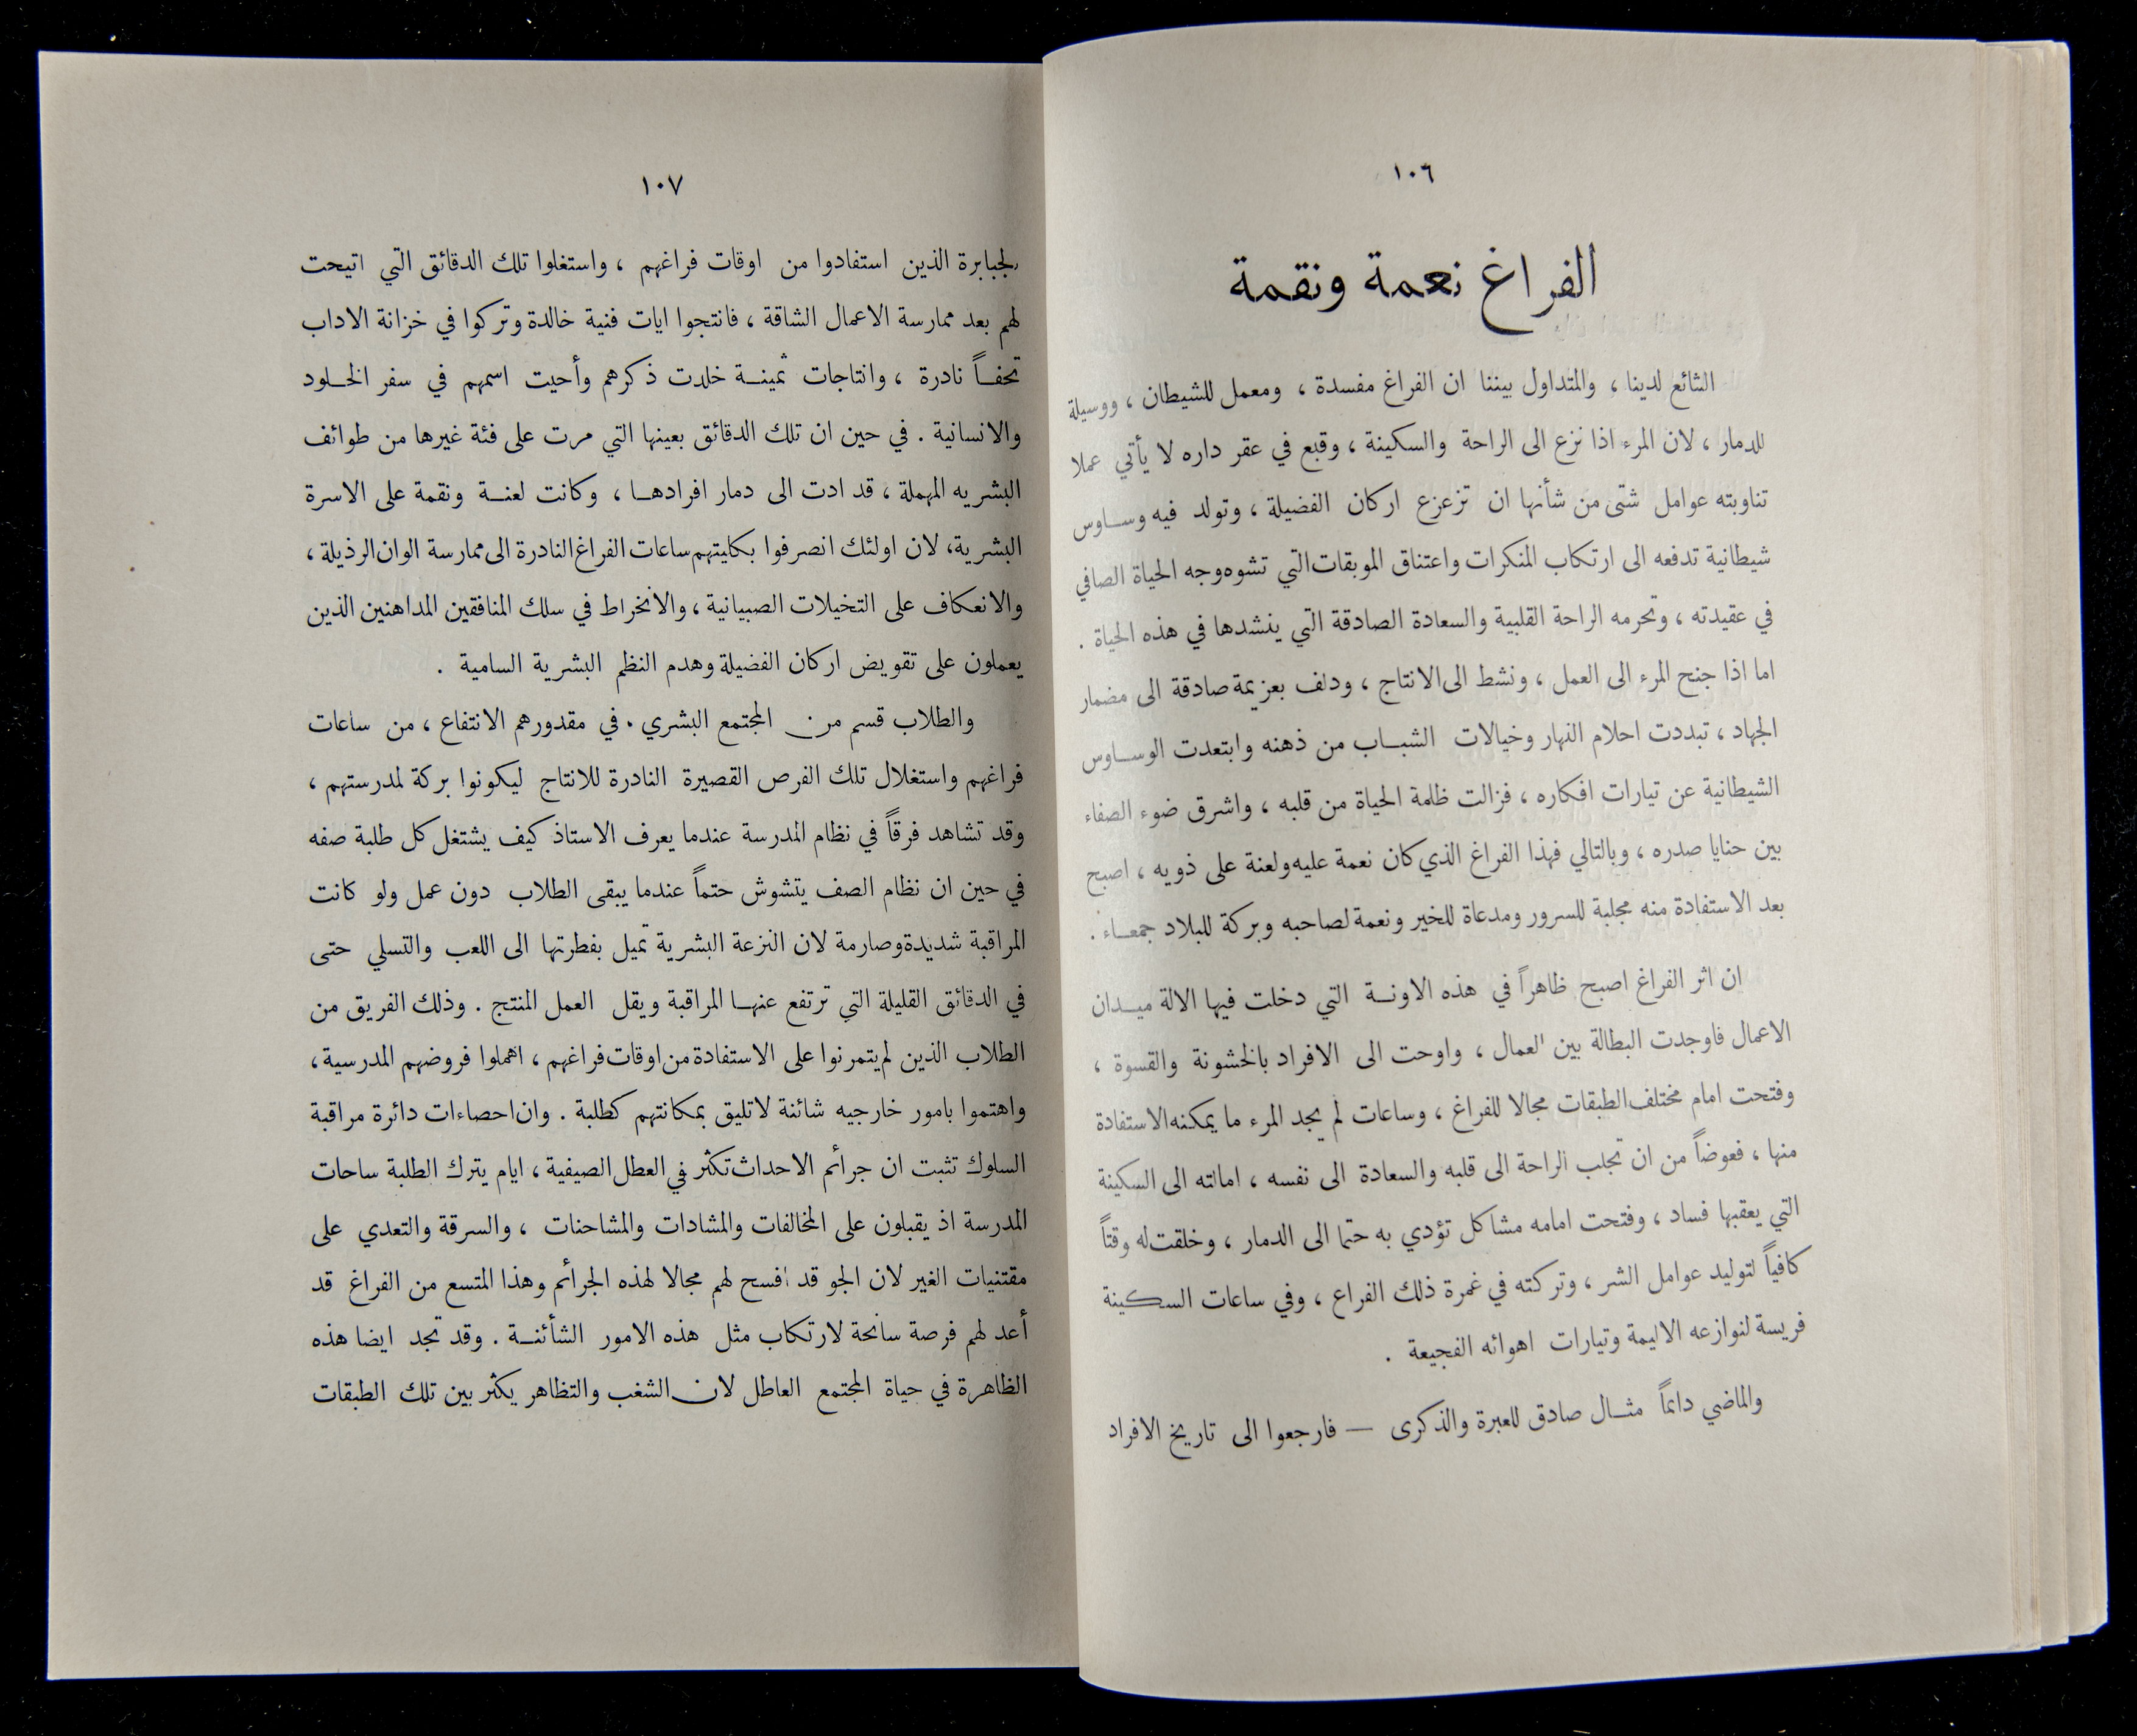 ١٠٦
الفراغ نعمة ونقمة
الشائع لدينا ، والمتداول بيننا ان الفراغ مفسدة ، ومعمل للشيطان ، ووسيلة
للدمار ، لان المرء اذا نزع الى الراحة والسكينة ، وقبع في عقر داره لا يأتي عملا
تناوبته عوامل شتى من شأنها ان تزعزع اركان الفضيلة ، وتولد فيه وساوس
شيطانية تدفعه الى ارتكاب المنكرات واعتناق الموبقات التي تشوه وجه الحياة الصافي
في عقيدته ، وتحرمه الراحة القلبية والسعادة الصادقة التي ينشدها في هذه الحياة .
اما اذا جنح المرء الى العمل ، ونشط الى الانتاج ، ودلف بعزيمة صادقة الى مضمار
الجهاد ، تبددت احلام النهار وخيالات الشباب من ذهنه وابتعدت الوساوس
الشيطانية عن تيارات افكاره ، فزالت ظلمة الحياة من قلبه ، واشرق ضوء الصفاء
بين حنايا صدره ، وبالتالي فهذا الفراغ الذي كان نعمة عليه ولعنة على ذويه ، اصبح
بعد الاستفادة منه مجلبة للسرور ومدعاة للخير ونعمة لصاحبه وبركة للبلاد جمعاء .
ان اثر الفراغ اصبح ظاهراً في هذه الاونة التي دخلت فيها الالة ميدان
الاعمال فاوجدت البطالة بين العمال ، واوحت الى الافراد بالخشونة والقسوة ،
وفتحت امام مختلف الطبقات مجالا للفراغ ، وساعات لم يجد المرء ما يمكنه الاستفادة
منها ، فعوضاً من ان تجلب الراحة الى قلبه والسعادة الى نفسه ، امالته الى السكينة
التي يعقبها فساد ، وفتحت امامه مشاكل تؤدي به حتما الى الدمار ، وخلقت له وقتاً
كافياً لتوليد عوامل الشر ، وتركته في غمرة ذلك الفراع ، وفي ساعات السكينة
فريسة لنوازعه الاليمة وتيارات اهوائه الفجيعة .
والماضي دائماً مثال صادق للعبرة والذكرى — فارجعوا الى تاريخ الافراد
١٠٧
الجبابرة الذين استفادوا من اوقات فراغهم ، واستغلوا تلك الدقائق التي اتيحت
لهم بعد ممارسة الاعمال الشاقة ، فانتجوا ايات فنية خالدة وتركوا في خزانة الاداب
تحفاً نادرة ، وانتاجات ثمينة خلدت ذكرهم وأحيت اسمهم في سفر الخلود
والانسانية . في حين ان تلك الدقائق بعينها التي مرت على فئة غيرها من طوائف
البشريه المهملة ، قد ادت الى دمار افرادها ، وكانت لعنة ونقمة على الاسرة
البشرية، لان اولئك انصرفوا بكليتهم ساعات الفراغ النادرة الى ممارسة الوان الرذيلة ،
والانعكاف على التخيلات الصبيانية ، والانخراط في سلك المنافقين المداهنين الذين
يعملون على تقويض اركان الفضيلة وهدم النظم البشرية السامية .
والطلاب قسم من المجتمع البشري . في مقدورهم الانتفاع ، من ساعات
فراغهم واستغلال تلك الفرص القصيرة النادرة للانتاج ليكونوا بركة لمدرستهم ،
وقد تشاهد فرقاً في نظام المدرسة عندما يعرف الاستاذ كيف يشتغل كل طلبة صفه
في حين ان نظام الصف يتشوش حتماً عندما يبقى الطلاب دون عمل ولو كانت
المراقبة شديدة وصارمة لان النزعة البشرية تميل بفطرتها الى اللعب والتسلي حتى
في الدقائق القليلة التي ترتفع عنها المراقبة ويقل العمل المنتج . وذلك الفريق من
الطلاب الذين لم يتمرنوا على الاستفادة من اوقات فراغهم ، اهملوا فروضهم المدرسية ،
واهتموا بامور خارجيه شائنة لا تليق بمكانتهم كطلبة . وان احصاءات دائرة مراقبة
السلوك تثبت ان جرائم الاحداث تكثر في العطل الصيفية ، ايام يترك الطلبة ساحات
المدرسة اذ يقبلون على المخالفات والمشادات والمشاحنات ، والسرقة والتعدي على
مقتنيات الغير لان الجو قد افسح لهم مجالا لهذه الجرائم وهذا المتسع من الفراغ قد
أعد لهم فرصة سانحة لارتكاب مثل هذه الامور الشأئنة . وقد تجد ايضا هذه
الظاهرة في حياة المجتمع العاطل لان الشغب والتظاهر يكثر بين تلك الطبقات